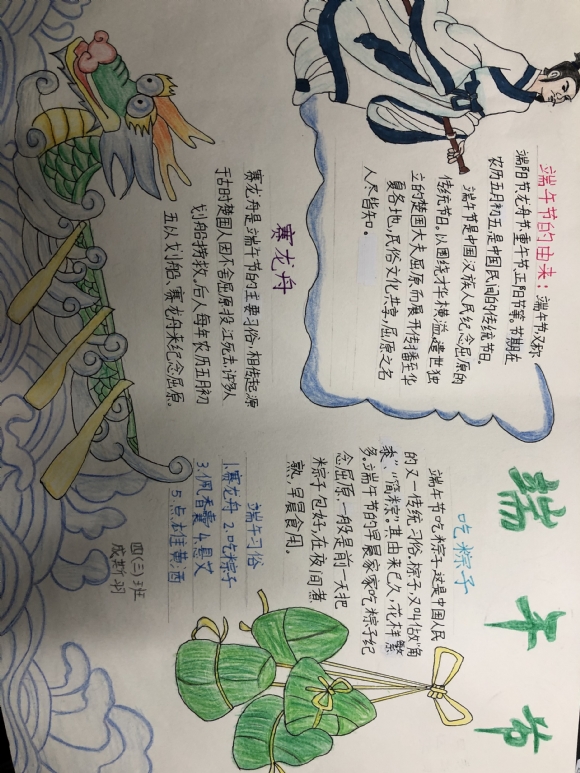 端午节
端午节的由来：端午节又称
端阳节、龙舟节、重午节、正阳节等。节期在
农历五月初五,是中国民间的传统节日。
端午节是中国汉族人民纪念屈原的
传统节日。以围绕才华横溢、遗世独
立的楚国大夫屈原而展开,传播至华
夏各地,民俗文化共享,屈原之名
人尽皆知。
赛龙舟
赛龙舟是端午节的主要习俗。相传起源
于古时楚国人因不舍屈原投江死去,许多人
划船捞救。后人每年农历五月初
五以划船、赛龙舟来纪念屈原。
吃粽子
端午节吃粽子,这是中国人民
的又一传统习俗。粽子又叫做"角
黍"、"筒粽"。其由来已久,花样繁
多。端午节的早晨家家吃粽子纪
念屈原,一般是前一天把
粽子包好,在夜间煮
熟,早晨食用。
端午习俗
1.赛龙舟 2.吃粽子
3.佩香囊 4.悬艾
5.点雄黄酒
四(三)班
成斯羽